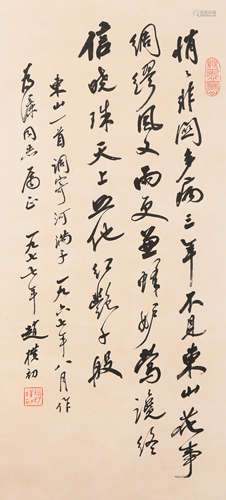 悄〻非關多病三年不見東山花事
綢繆風又雨更兼蜂妒鶯讒終
信曉珠天上照他紅艷千般
東山一首調寄河滿子一九六七年八月作
同志屬正
一九七七年 趙樸初